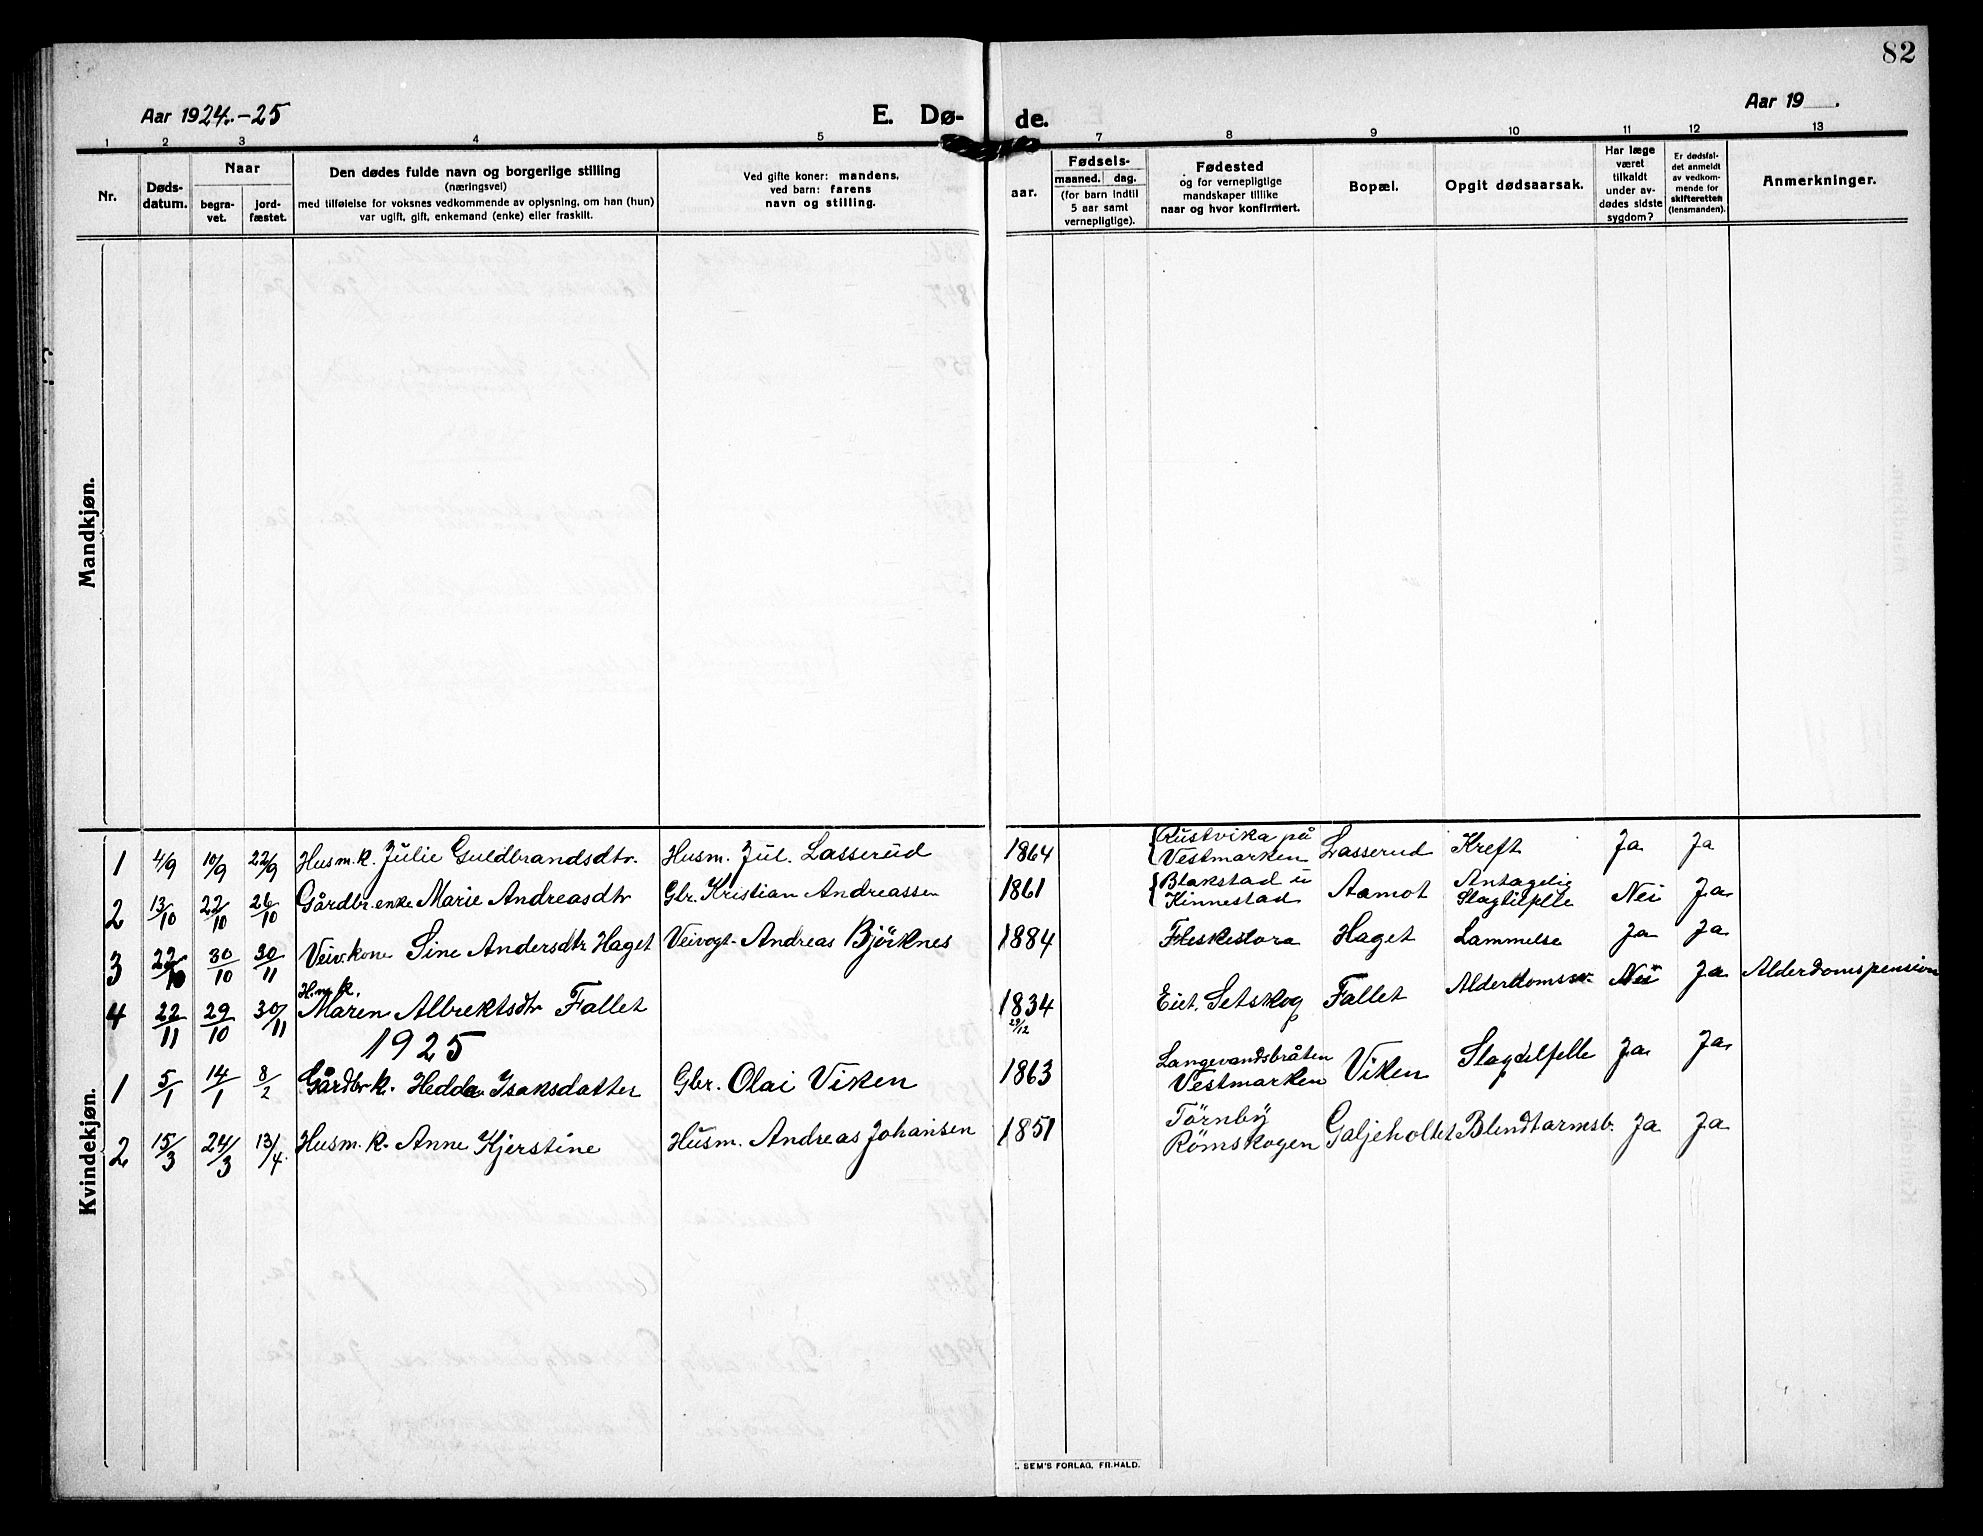 82
Aar 1924.-25
E. Dø-
de.
Aar 19 .
1 2 3 4 5 7 8 9 10 11 12 13
Nr.
Døds-
datum.
Naar
begra-
vet.
jord-
fæstet.
Den dødes fulde navn og borgerlige stilling
(næringsvei)
med tilføielse for voksnes vedkommende av oplysning, om han (hun)
var ugift, gift, enkemand (enke) eller fraskilt.
Ved gifte koner: mandens,
ved barn: farens
navn og stilling.
aar.
Fødsels-
maaned. dag.
(for barn indtil
5 aar samt
vernepligtige).
Fødested
og for vernepligtige
mandskaper tillike
naar og hvor konfirmert.
Bopæl.
Opgit dødsaarsak.
Har læge
været
tilkaldt
under av-
dødes sidste
sygdom?
Er dødsfal-
det anmeldt
av vedkom-
mende for
skifteretten
(lensmanden).
Anmerkninger.
Mandkjøn.
Kvindekjøn.
1 4/9 10/9 22/9 Husm.k. Julie Guldbrandsdtr. Husm. Jul. Lasserud 1864 Rustvika på Vestmarken Lasserud Kreft Ja Ja
2 13/10 22/10 26/10 Gårdbr.enke Marie Andreasdtr Gbr. Kristian Andreassen 1861 Blakstad u Kinnestad Aamot Antagelig Slagtilfelle Nei Ja
3 22/10 30/10 30/11 Veivkone Sine Andersdtr Haget Veivogt. Andreas Björknes 1884 Fleskestora Haget Lammelse Ja Ja
4 22/11 29/10 30/11 H.m.k. Maren Albrektsdtr Fallet 1834 29/12 Eiet. Setskog Fallet Nei Ja Alderdomspension
1925
1 5/1 14/1 8/2 Gårdbr k. Hedda Isaksdatter Gbr. Olai Viken 1863 Langevandsbråten Vestmarken Viken Slagtilfelle Ja Ja
2 15/3 24/3 13/4. Husm. k. Anne Kjerstine Husm. Andreas Johansen 1851 Törnby Römskogen Galjeholtet Blindtarmsb. Ja Ja
SEM'S FORLAG, FR.HALD.